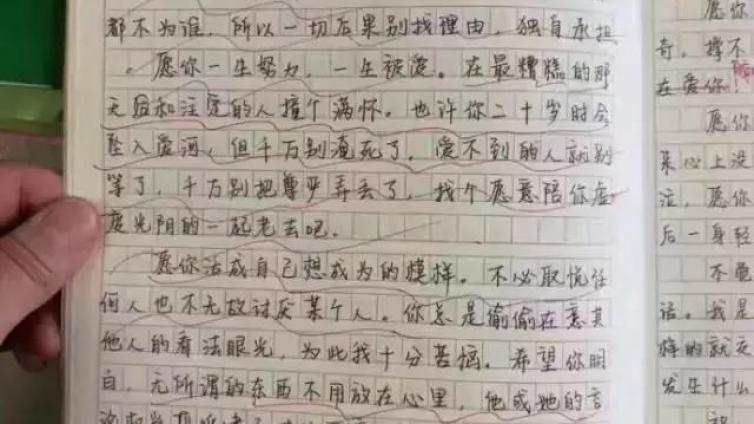 都不为谁，所以一切后果别找理由，独自承担
。愿你一生努力，一生被爱。在最糟糕的那
天后和注定的人撞个满怀。也许你二十岁时会
坠入爱河，但千万别淹死了，爱不到的人就别
等了，千万别把尊严弄丢了，找个愿意陪你虚
度光阴的一起老去吧.
愿你活成自己想成为的模样。不必取悦任
何人也不无故讨厌某个人。你总是偷偷在意其
他人的看法眼光，为此我十分苦恼。希望你明
白，无所谓的东西不用放在心里，他或她的言
愿你
奇，撑不
在爱你
愿
某心上没
注，愿你
后一身轻
不
话。我是
发生什么